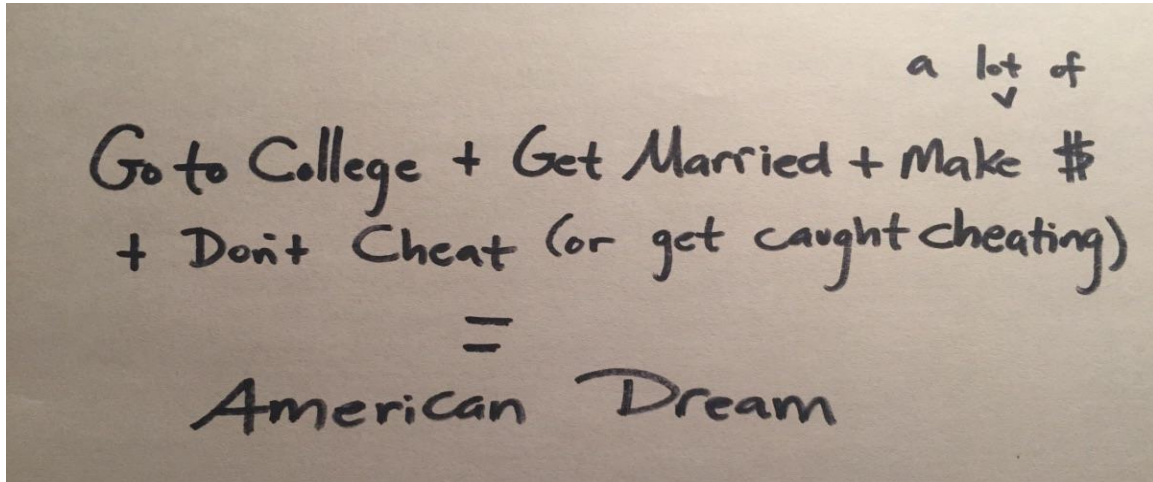 a lot of
Go to College + Get Married + Make $
+ Don't Cheat (or get caught cheating)
=
American Dream